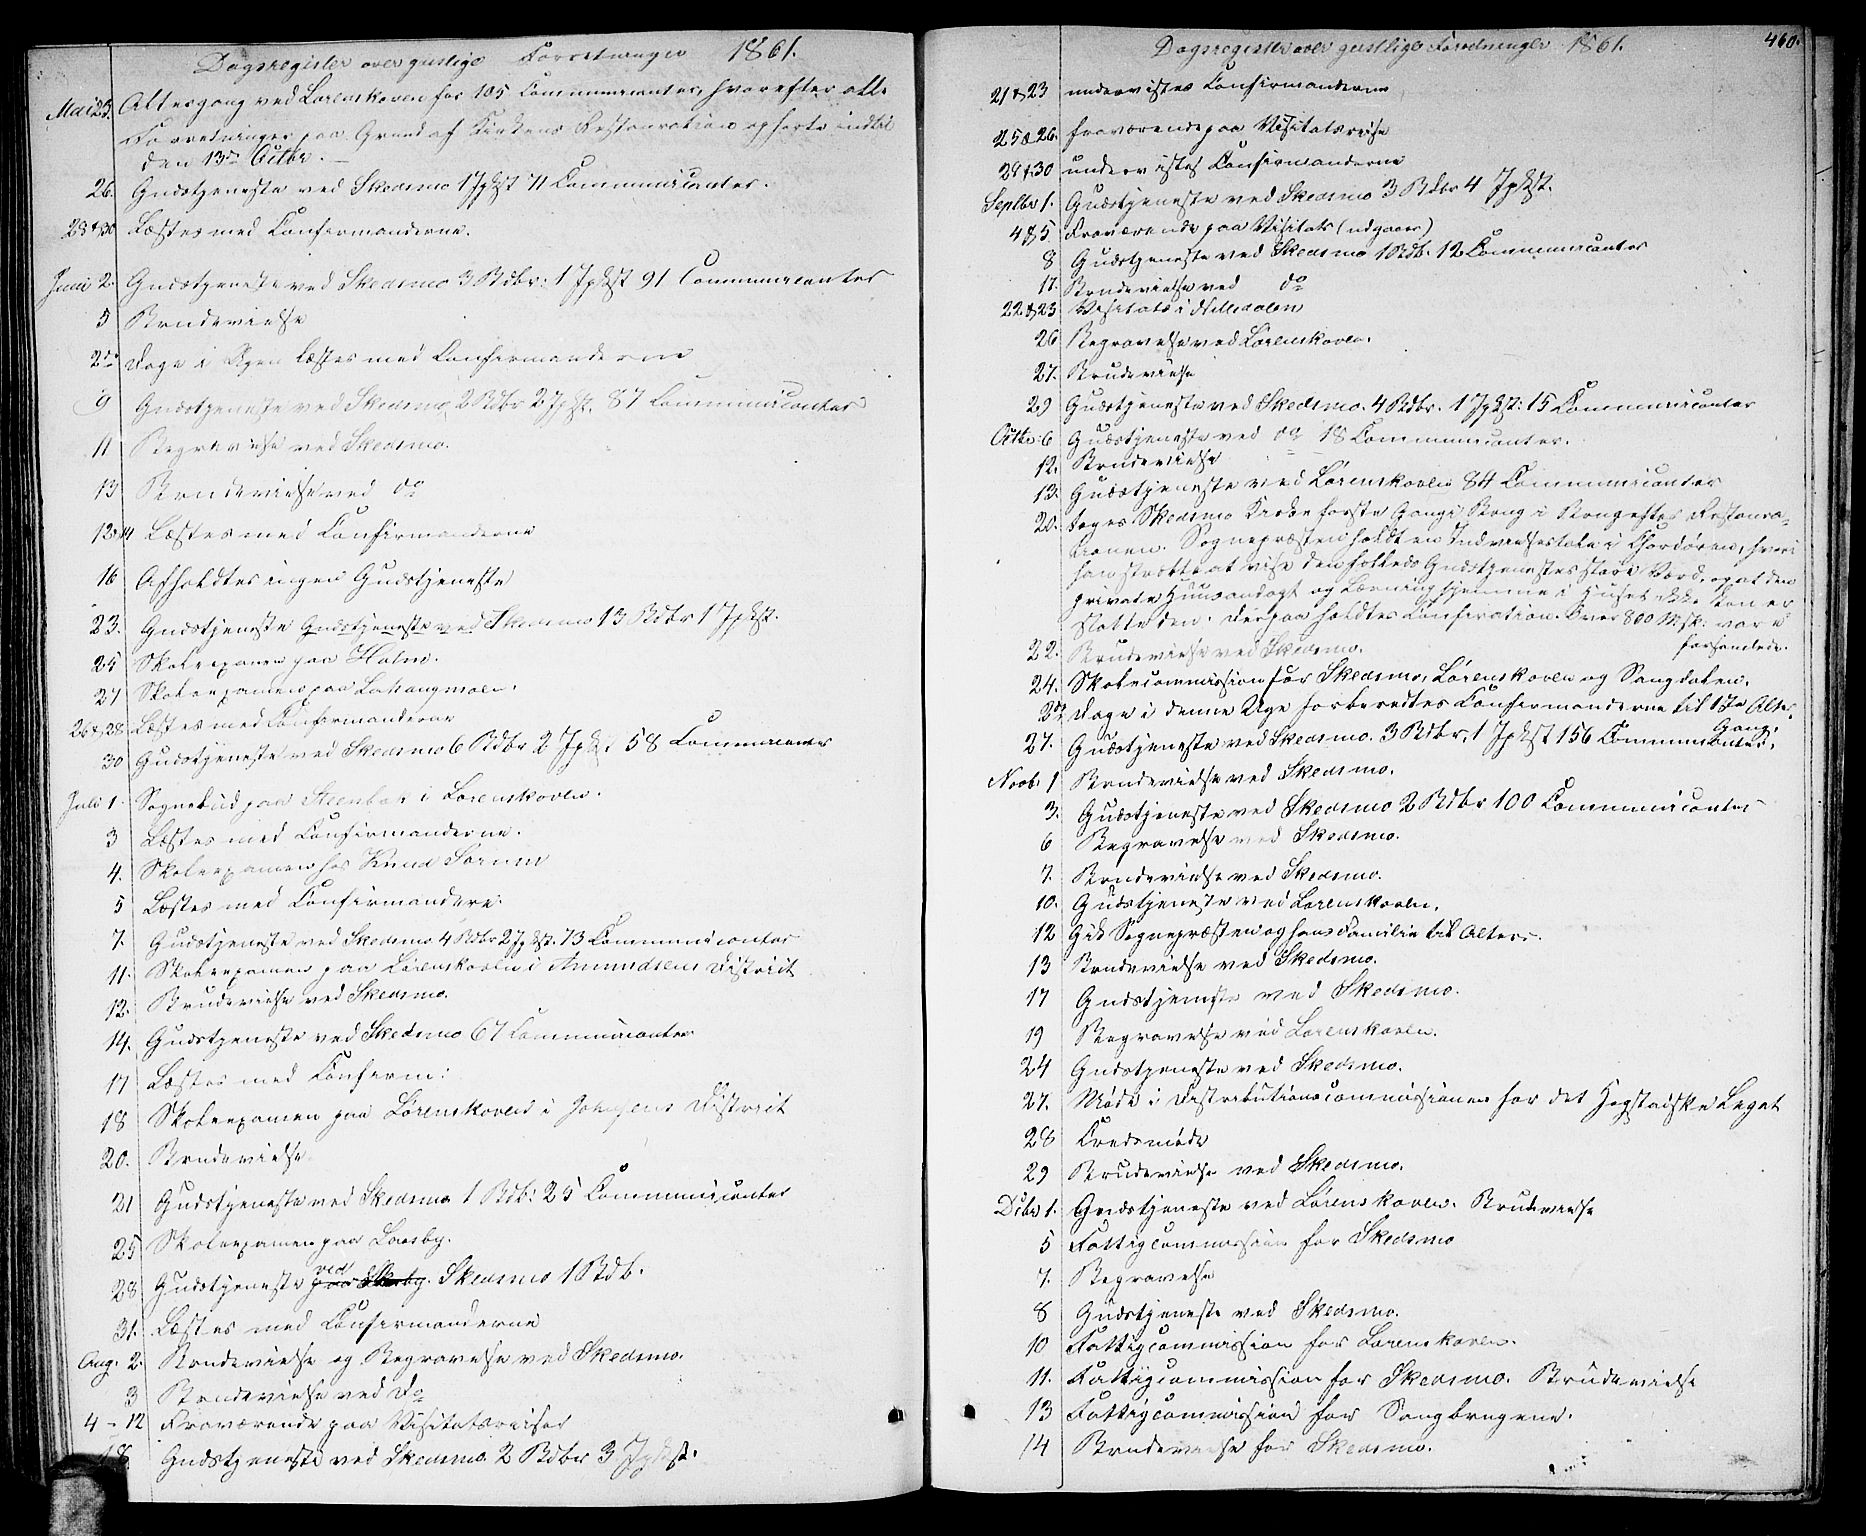 Dagsregister over geistlige Forretninger 1861.
Mai 23. Altergang ved Lørenskoven for 105 Communicanter, hvorefter alle
Forretninger paa Grund af Kirkens Restauration ophørte indtil
den 13de Octbr.
26. Gudstjeneste ved Skedsmo 1 Jpkst 71 Communicanter.
28 & 30 Læstes med Confirmanderne.
Juni 2. Gudstjeneste ved Skedsmo 3 Brdbr: 1 Jpkst 91 Communicanter
5 Brudevielse
2de Dage i Ugen læstes med Confirmanderne
9 Gudstjeneste ved Skedsmo, 2 Brdbr 2 Jpkst. 87 Communicanter
11 Begravelse ved Skedsmo.
13 Brudevielse ved do
12 & 14 Læstes med Confirmanderne
16 Afholdtes ingen Gudstjeneste
23. Gudstjeneste Gudstjeneste ved Skedsmo 13 Brdbr 1 Jpkst.
25 Skoleexamen paa Holm.
27 Skoleexamen paa
26 & 28 Læstes med Confirmanderne
30 Gudstjeneste ved Skedsmo 6 Brdbr 2 Jpkst 58 Communicanter
Juli 1. Sognebud paa Steenbæk i Lørenskoven.
3 Læstes med Confirmanderne.
4. Skoleexamen hos Knud Sørum
5 Læstes med Confirmandere.
7. Gudstjeneste ved Skedsmo 4 Brdbr 2 Jpkst. 73 Communicanter
11. Skoleexamen paa Lørenskoven i Amundsens District
12. Brudevielse ved Skedsmo.
14. Gudstjeneste ved Skedsmo 67 Communicanter
17 Læstes med Confirm:
18 Skoleexamen paa Lørenskoven i Johnsens District
20. Brudevielse
21 Gudstjeneste ved Skedsmo 1 Brdb: 25 Communicanter
25 Skoleexamen paa Losby.
28 Gudstjeneste ved Skedsmo 1 Brdb.
31. Læstes med Confirmanderne
Aug. 2. Brudevielse og Begravelse ved Skedsmo.
3 Brudevielse ved Do
4 - 12 Fraværende paa Visitatsreiser
18 Gudstjeneste ved Skedsmo 2 Brdbr 3 Jpkst.
Dagsregister over geistlige Forretninger 1861. 460.
21 & 23 undervistes Confirmanderne
25 & 26. fraværende paa Visitatsreise
28 & 30 undervistes Confirmanderne
Septbr 1. Gudstjeneste ved Skedsmo 3 Brdbr 4 Jpkst.
4 & 5 Fraværende paa Visitats (udgaaer)
8 Gudstjeneste ved Skedsmo 1 Brdb. 12 Communicanter
17. Brudevielse ved do
22 & 23 Visitats i Nittedalen
26 Begravelse ved Lørenskoven.
27. Brudevielse
29 Gudstjeneste ved Skedsmo. 4 Brdbr. 1 Jpkst: 15 Communicanter
Octbr: 6 Gudstjeneste ved do 18 Communicanter.
12. Brudevielse
13. Gudstjeneste ved Lørenskoven 84 Communicanter
20. toges Skedsmo Kirke første Gang i Brug efter Restaura-
tionen. Sognepræsten holdt en Indvielsestale i Chordøren, hvori
han stræbte at vise den fælleds Gudstjenestes store Værd, og at den
private Huusandagt og Læsning hjemme i Huset ikke kan er
statte den. Derpaa holdtes Confirmation. Over 800 Msk: vare
forsamlede.
22. Brudevielse ved Skedsmo.
24. Skolecommission for Skedsmo, Lørenskoven og Sangdalen.
2de Dage i denne Uge forberedtes Confirmanderne til 1ste Alter-
gang.
27. Gudstjeneste ved Skedsmo. 3 Brdbr. 1 Jpkst 156 Communicanter.
Novbr 1 Brudevielse ved Skedsmo.
3. Gudstjeneste ved Skedsmo 2 Brdbr 100 Communicanter
6 Begravelse ved Skedsmo.
7. Brudevielse ved Skedsmo.
10. Gudstjeneste ved Lørenskoven.
12 Gik Sognepræsten og hans Familie til Alters.
13 Brudevielse ved Skedsmo.
17 Gudstjeneste ved Skedsmo.
19 Begravelse ved Lørenskoven.
24 Gudstjeneste ved Skedsmo.
27. Møde i Distributionscommissionen for det Hegstadske Legat
28 Tredsmøde
29 Brudevielse ved Skedsmo.
Dcbr 1. Gudstjeneste ved Lørenskoven. Brudevielse
5 Fattigcommission for Skedsmo
7. Begravelse
8 Gudstjeneste ved Skedsmo.
10 Fattigcommission for Lørenskoven.
11. Fattigcommission for Skedsmo. Brudevielse
13 Fattigcommission for Sangbrugene.
14 Brudevielse for Skedsmo.